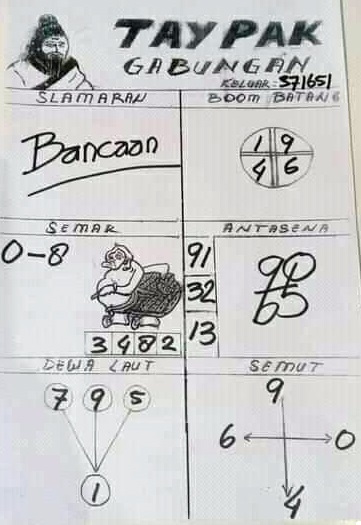 TAYPAK
GABUNGAN
KELUAR: 371651
SLAMARAN
BOOM BATANG
Bancaan
1 9
4 6
SEMAR
ANTASENA
0-8
91
32
13
3 4 8 2
90
65
DEWA LAUT
SEMUT
7 9 5
1
9
6 0
4